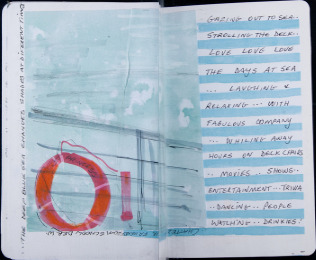 GAZING OUT TO SEA..
STROLLING THE DECK..
LOVE LOVE LOVE
THE DAYS AT SEA
... LAUGHING &
RELAXING ... WITH
FABULOUS COMPANY
... WHILING AWAY
HOURS ON DECK CHAIRS
.. MOVIES .. SHOWS..
ENTERTAINMENT .. TRIVIA
.. DANCING .. PEOPLE
WATCHING .. DRINKIES!
...THE DEEP BLUE SEA CHANGES SHADES AT DIFFERENT TIMES